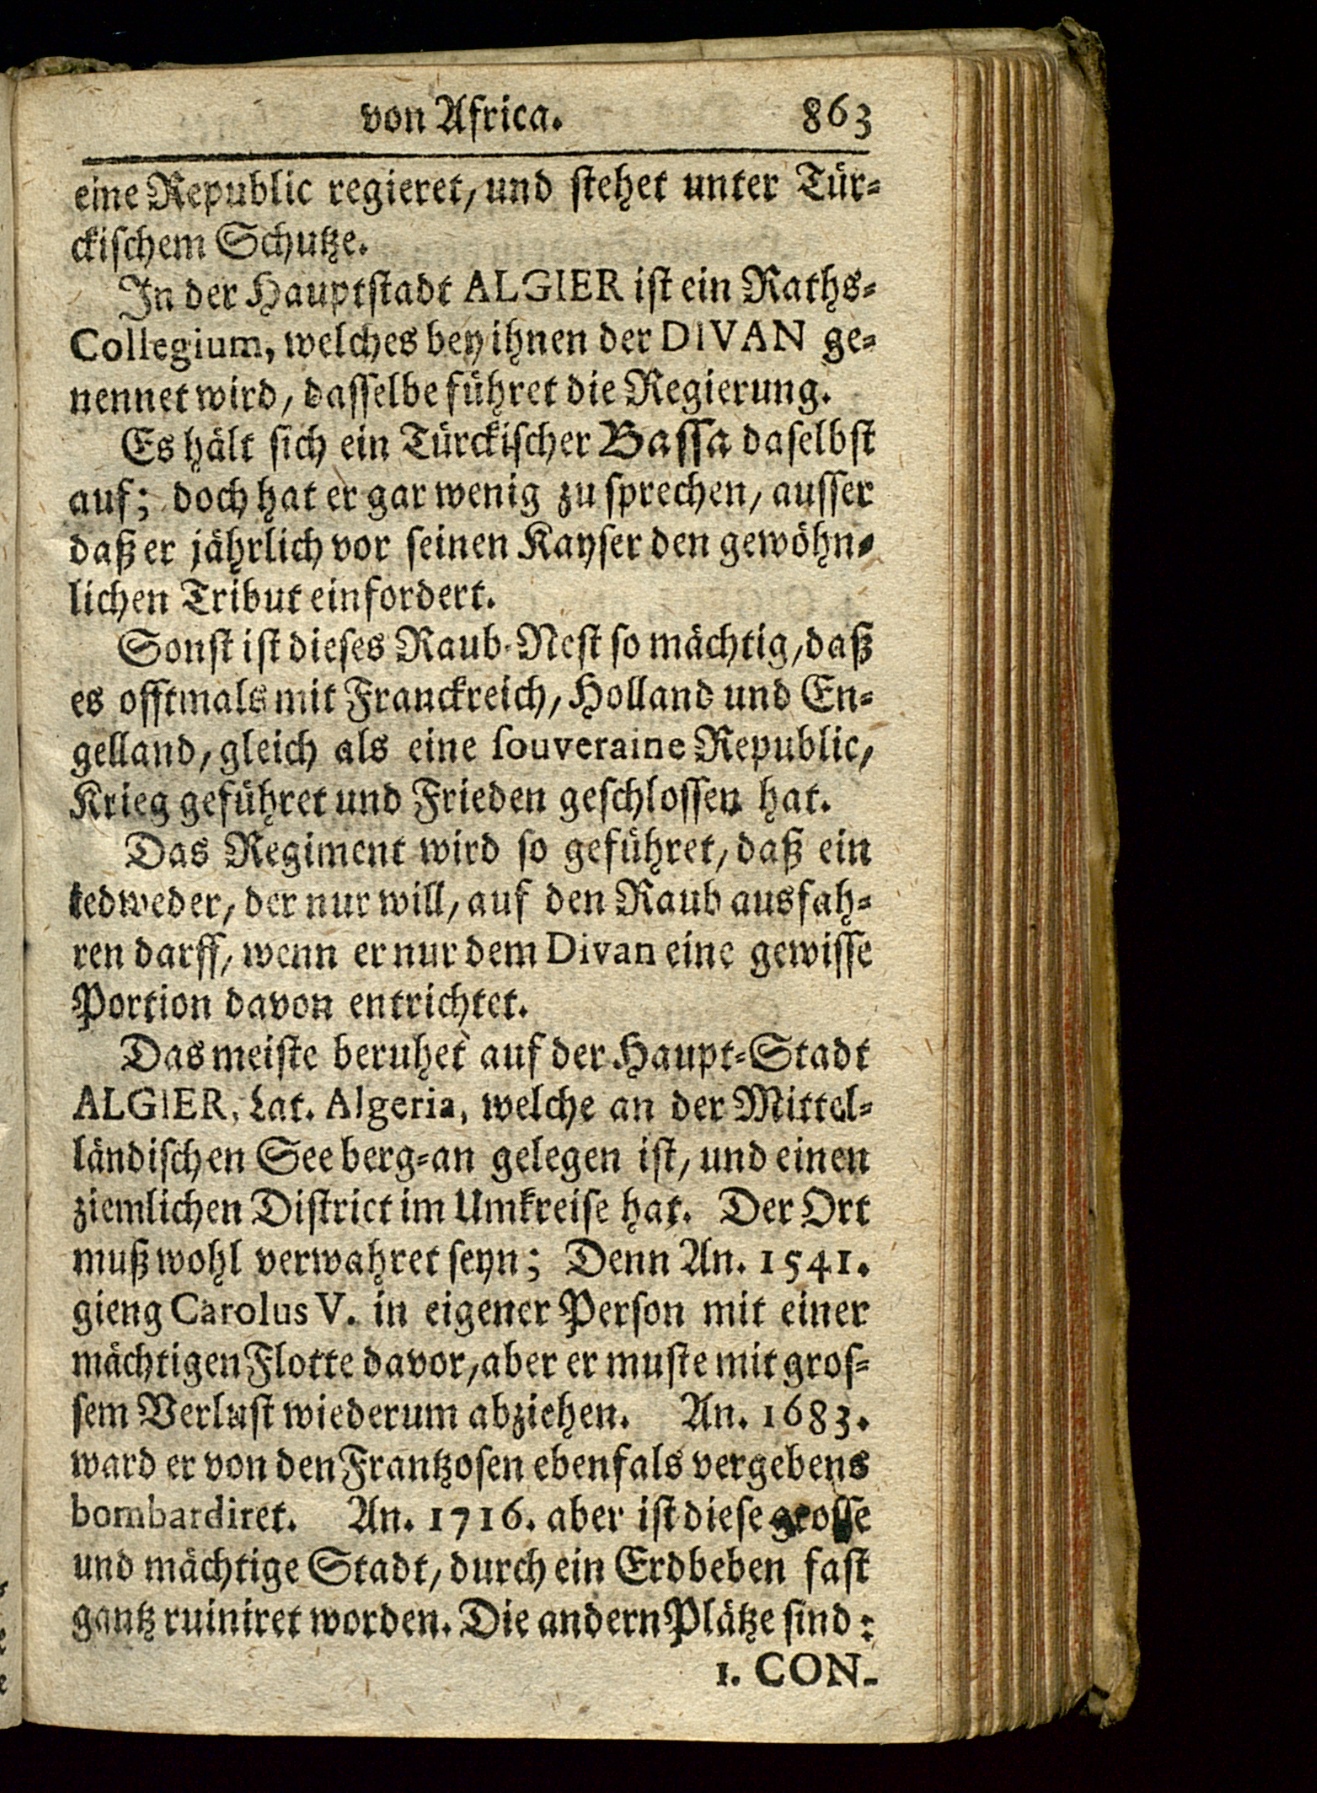 von Africa. 863
eine Republic regieret, und stehet unter Tür-
ckischem Schutze.
In der Hauptstadt ALGIER ist ein Raths-
Collegium, welches bey ihnen der DIVAN ge-
nennet wird, dasselbe führet die Regierung.
Es hält sich ein Türckischer Bassa daselbst
auf; doch hat er gar wenig zu sprechen, ausser
daß er jährlich vor seinen Kayser den gewöhn-
lichen Tribut einfordert.
Sonst ist dieses Raub-Nest so mächtig, daß
es offtmals mit Franckreich, Holland und En-
gelland, gleich als eine souveraine Republic,
Krieg geführet und Frieden geschlossen hat.
Das Regiment wird so geführet, daß ein
iedweder, der nur will, auf den Raub ausfah-
ren darff, wenn er nur dem Divan eine gewisse
Portion davon entrichtet.
Das meiste beruhet auf der Haupt-Stadt
ALGIER, Lat. Algeria, welche an der Mittel-
ländischen See berg-an gelegen ist, und einen
ziemlichen District im Umkreise hat. Der Ort
muß wohl verwahret seyn; Denn An. 1541.
gieng Carolus V. in eigener Person mit einer
mächtigen Flotte davor, aber er muste mit gros-
sem Verlust wiederum abziehen. An. 1683.
ward er von den Frantzosen ebenfals vergebens
bombardiret. An. 1716. aber ist diese grosse
und mächtige Stadt, durch ein Erdbeben fast
gantz ruiniret worden. Die andern Plätze sind:
1. CON-